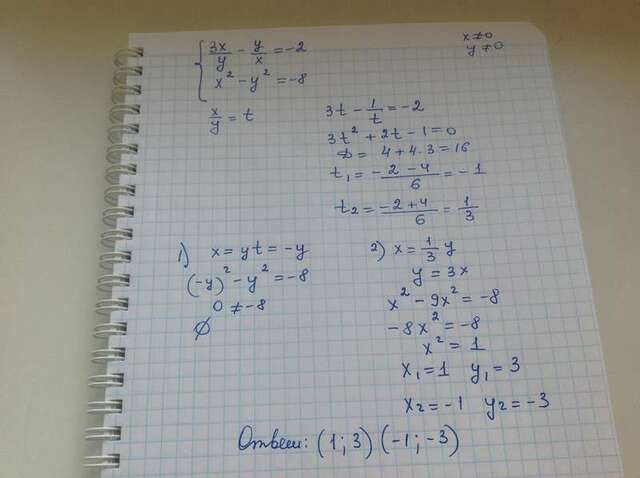 x≠0
y≠0
{ 3x/y - y/x = -2
x² - y² = -8
x/y = t
3t - 1/t = -2
3t² + 2t - 1 = 0
D = 4 + 4·3 = 16
t₁ = -2-4/6 = -1
t₂ = -2+4/6 = 1/3
1) x = yt = -y
(-y)² - y² = -8
0 ≠ -8
∅
2) x = 1/3 y
y = 3x
x² - 9x² = -8
-8x² = -8
x² = 1
x₁ = 1 y₁ = 3
x₂ = -1 y₂ = -3
Ответ: (1; 3) (-1; -3)